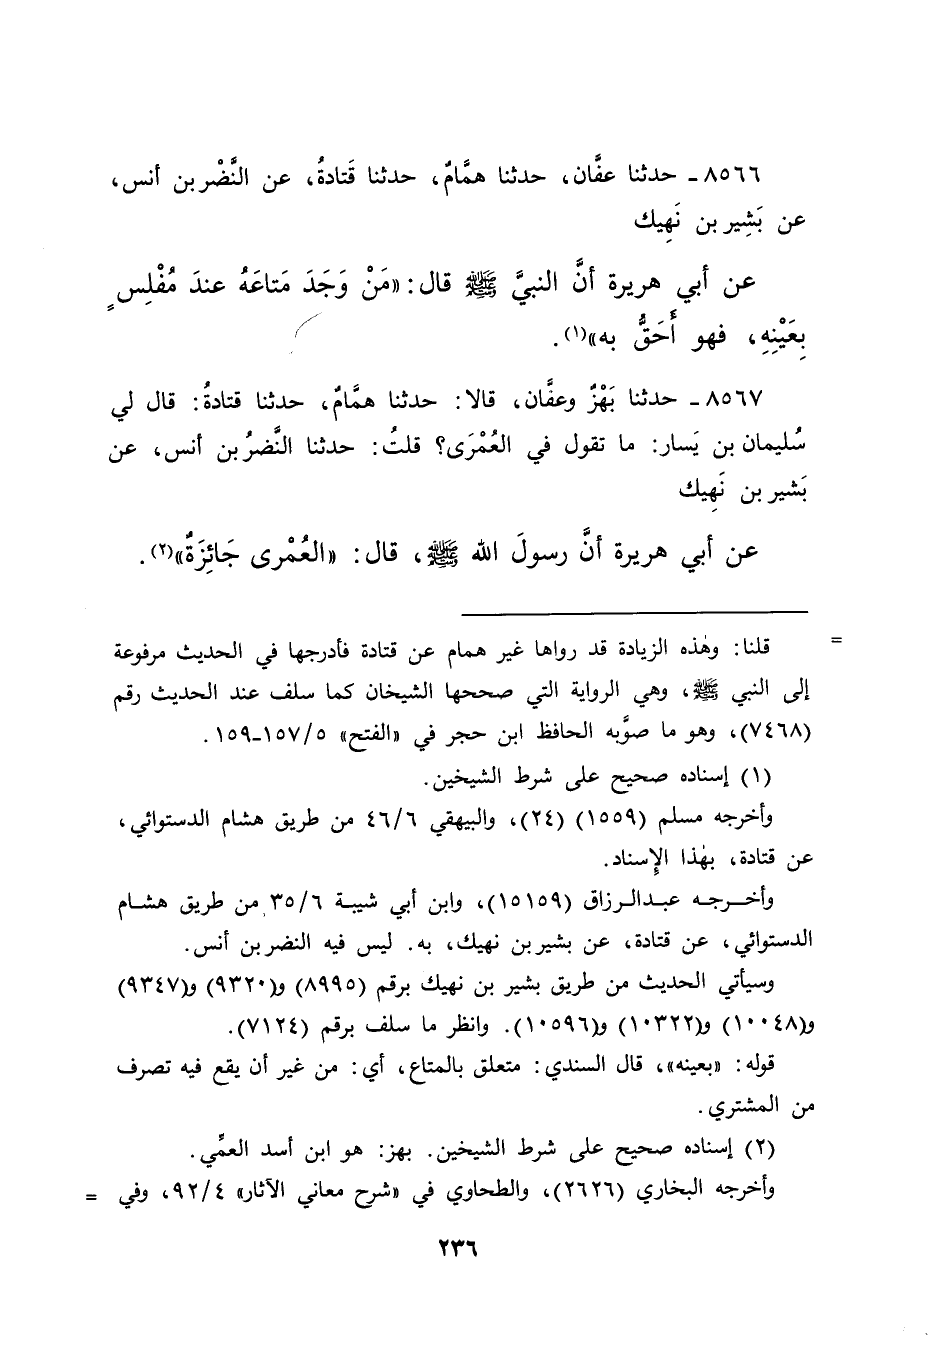 ٨٥٦٦ ـ حدثنا عفَّان، حدثنا همَّامٌ، حدثنا قَتادةُ، عن النَّضْر بن أنس،
عن بَشِير بن نَهِيك
عن أبي هريرة أنَّ النبيَّ ﷺ قال: «مَنْ وَجَدَ مَتاعَهُ عندَ مُفْلِسٍ
بِعَيْنِهِ، فهو أَحَقُّ به»(١).
٨٥٦٧ ـ حدثنا بَهْزٌ وعفَّان، قالا: حدثنا همَّامٌ، حدثنا قتادةُ: قال لي
سُليمان بن يَسار: ما تقول في العُمْرَى؟ قلتُ: حدثنا النَّضرُ بن أنس، عن
بَشير بن نَهِيك
عن أبي هريرة أنَّ رسولَ الله ﷺ، قال: «العُمْرى جَائِزَةٌ»(٢).
= قلنا: وهٰذه الزيادة قد رواها غير همام عن قتادة فأدرجها في الحديث مرفوعة
إلى النبي ﷺ، وهي الرواية التي صححها الشيخان كما سلف عند الحديث رقم
(٧٤٦٨)، وهو ما صوَّبه الحافظ ابن حجر في «الفتح» ١٥٧/٥-١٥٩.
(١) إسناده صحيح على شرط الشيخين.
وأخرجه مسلم (١٥٥٩) (٢٤)، والبيهقي ٤٦/٦ من طريق هشام الدستوائي،
عن قتادة، بهٰذا الإِسناد.
وأخرجه عبدالرزاق (١٥١٥٩)، وابن أبي شيبة ٣٥/٦ من طريق هشام
الدستوائي، عن قتادة، عن بشير بن نهيك، به. ليس فيه النضر بن أنس.
وسيأتي الحديث من طريق بشير بن نهيك برقم (٨٩٩٥) و(٩٣٢٠) و(٩٣٤٧)
و(١٠٠٤٨) و(١٠٣٢٢) و(١٠٥٩٦). وانظر ما سلف برقم (٧١٢٤).
قوله: «بعينه»، قال السندي: متعلق بالمتاع، أي: من غير أن يقع فيه تصرف
من المشتري.
(٢) إسناده صحيح على شرط الشيخين. بهز: هو ابن أسد العمِّي.
وأخرجه البخاري (٢٦٢٦)، والطحاوي في «شرح معاني الآثار» ٩٢/٤، وفي =
٢٣٦